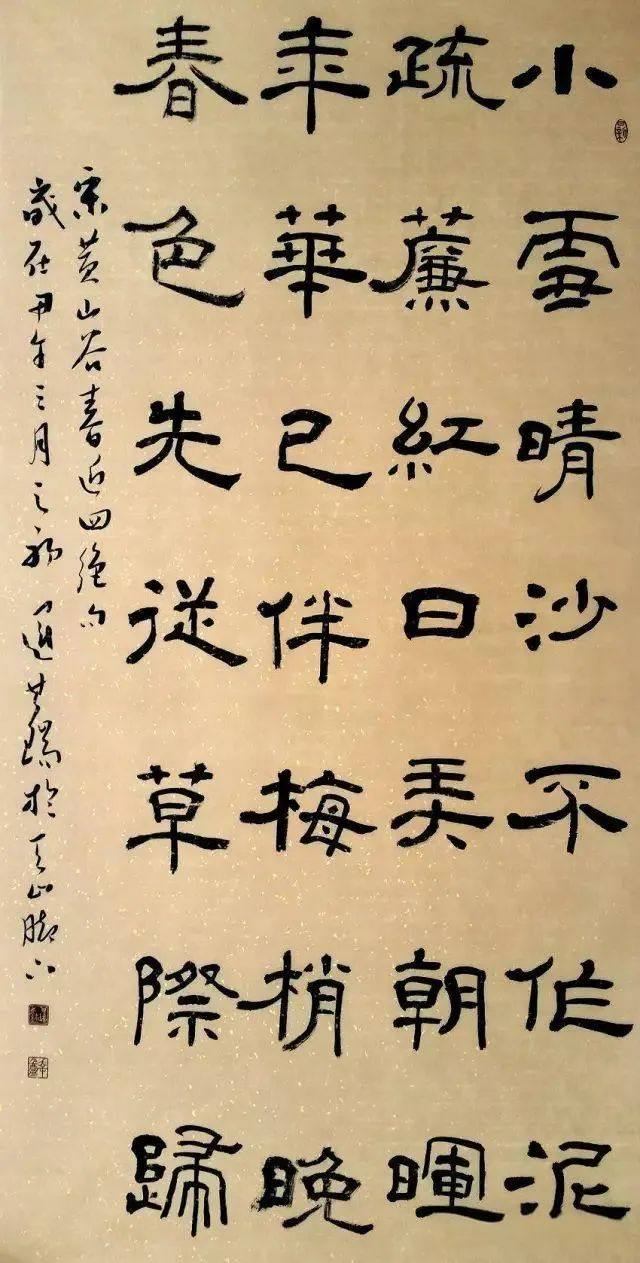 小雪晴沙不作泥
疏簾紅日弄朝暉
年華已伴梅梢晚
春色先從草際歸
宋黄山谷春近四絶句
歲在甲午三月之初於天山脚下